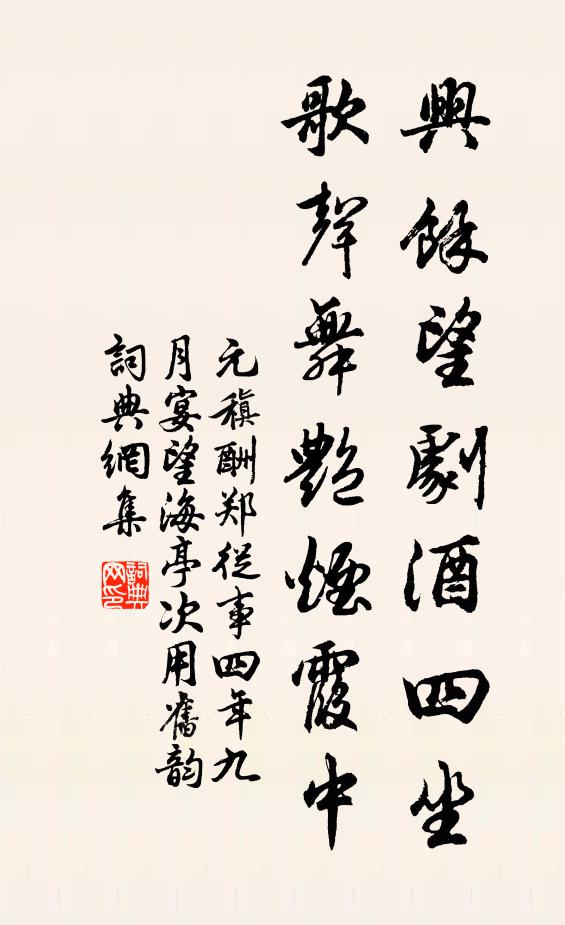 興餘望劇酒四坐
歌聲舞艷煙霞中
元稹酬郑從事四年九
月宴望海亭次用舊韵
詞典網集
詞典
网印